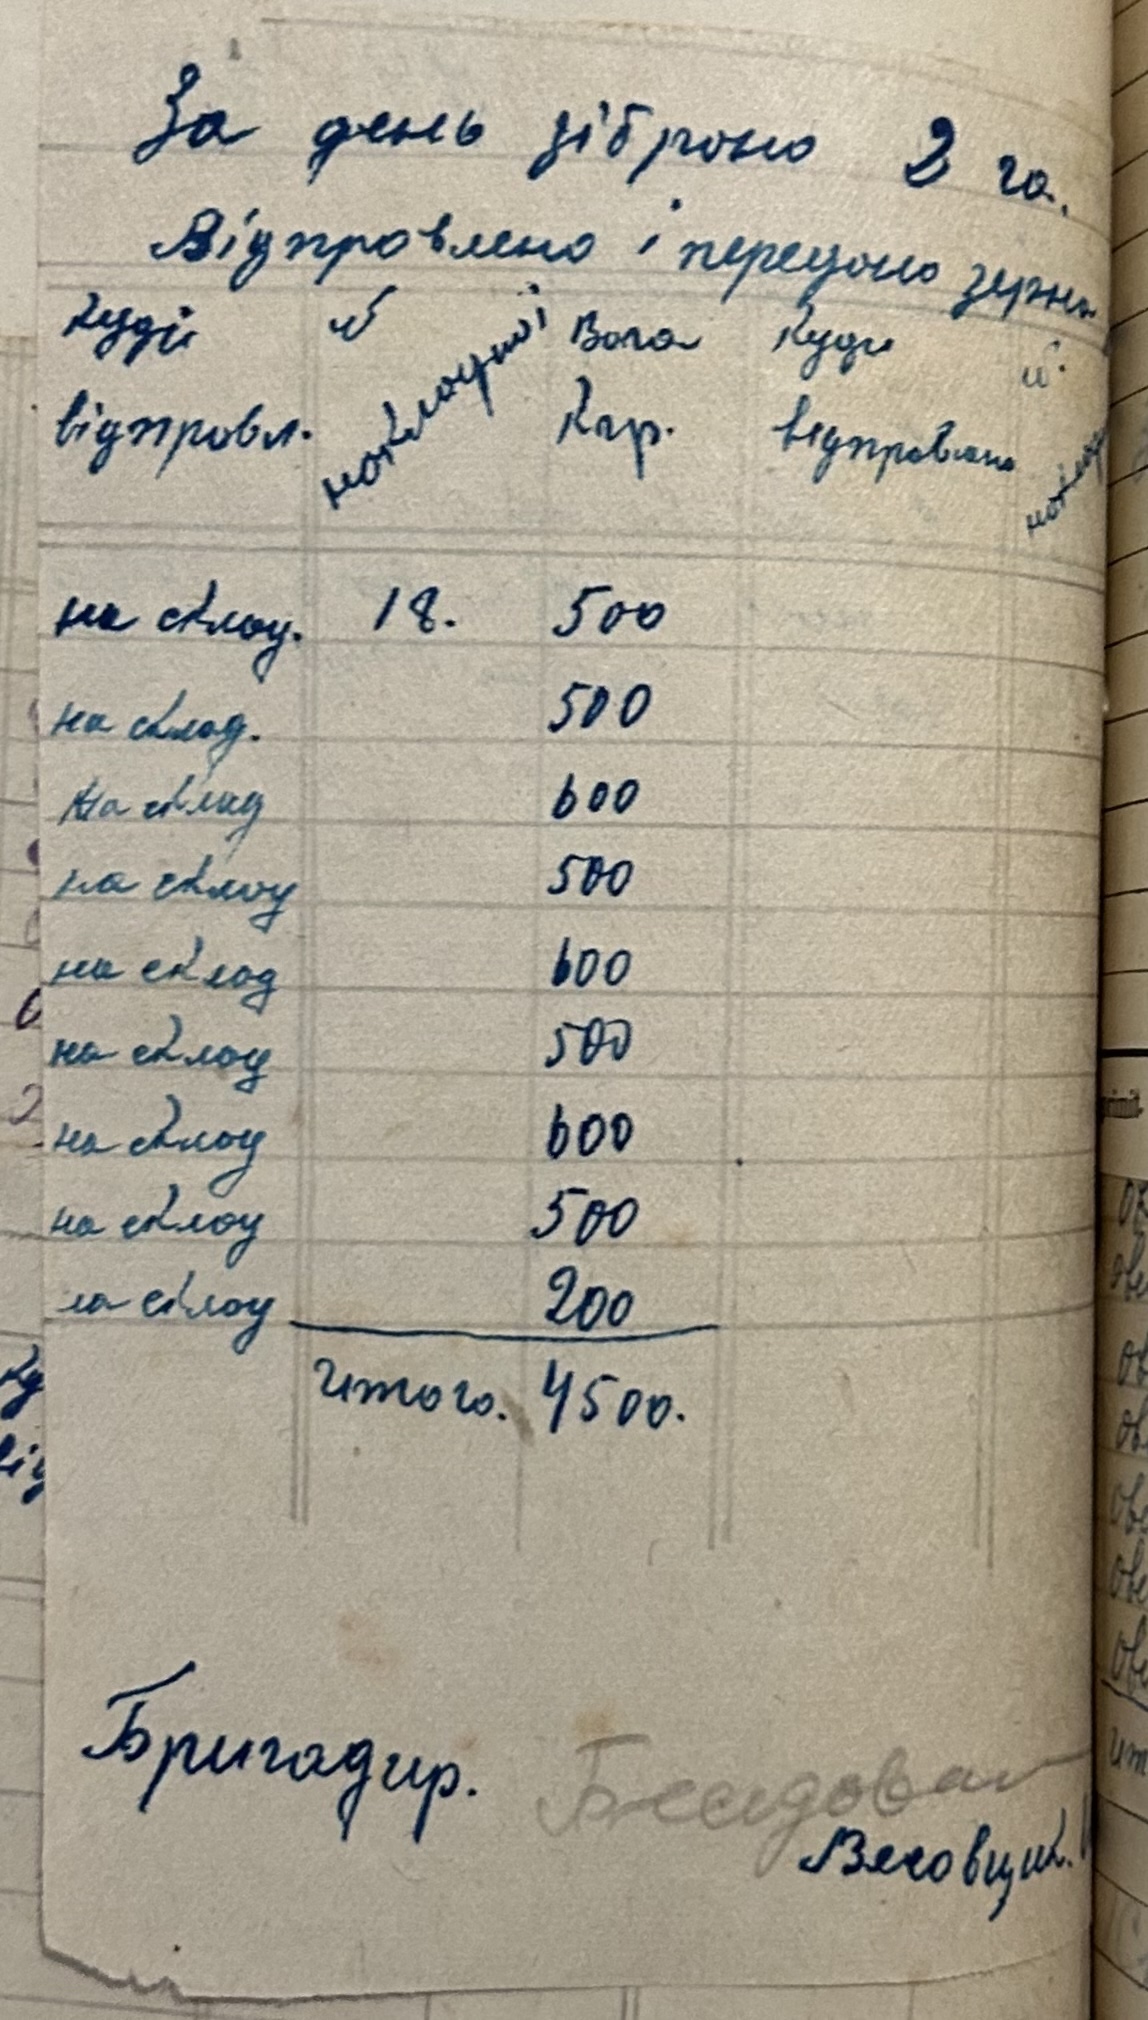 За день зібрано 2 га.
Відправлено і передано зерна
Куди № накладної Вага Куди №
відправл. Кгр. відправлено наклад
на склад. 18. 500
на склад. 500
На склад 600
на склад 500
на склад 600
на склад 500
на склад 600
на склад 500
на склад 200
итого. 4500.
Бригадир.
Весовщик.